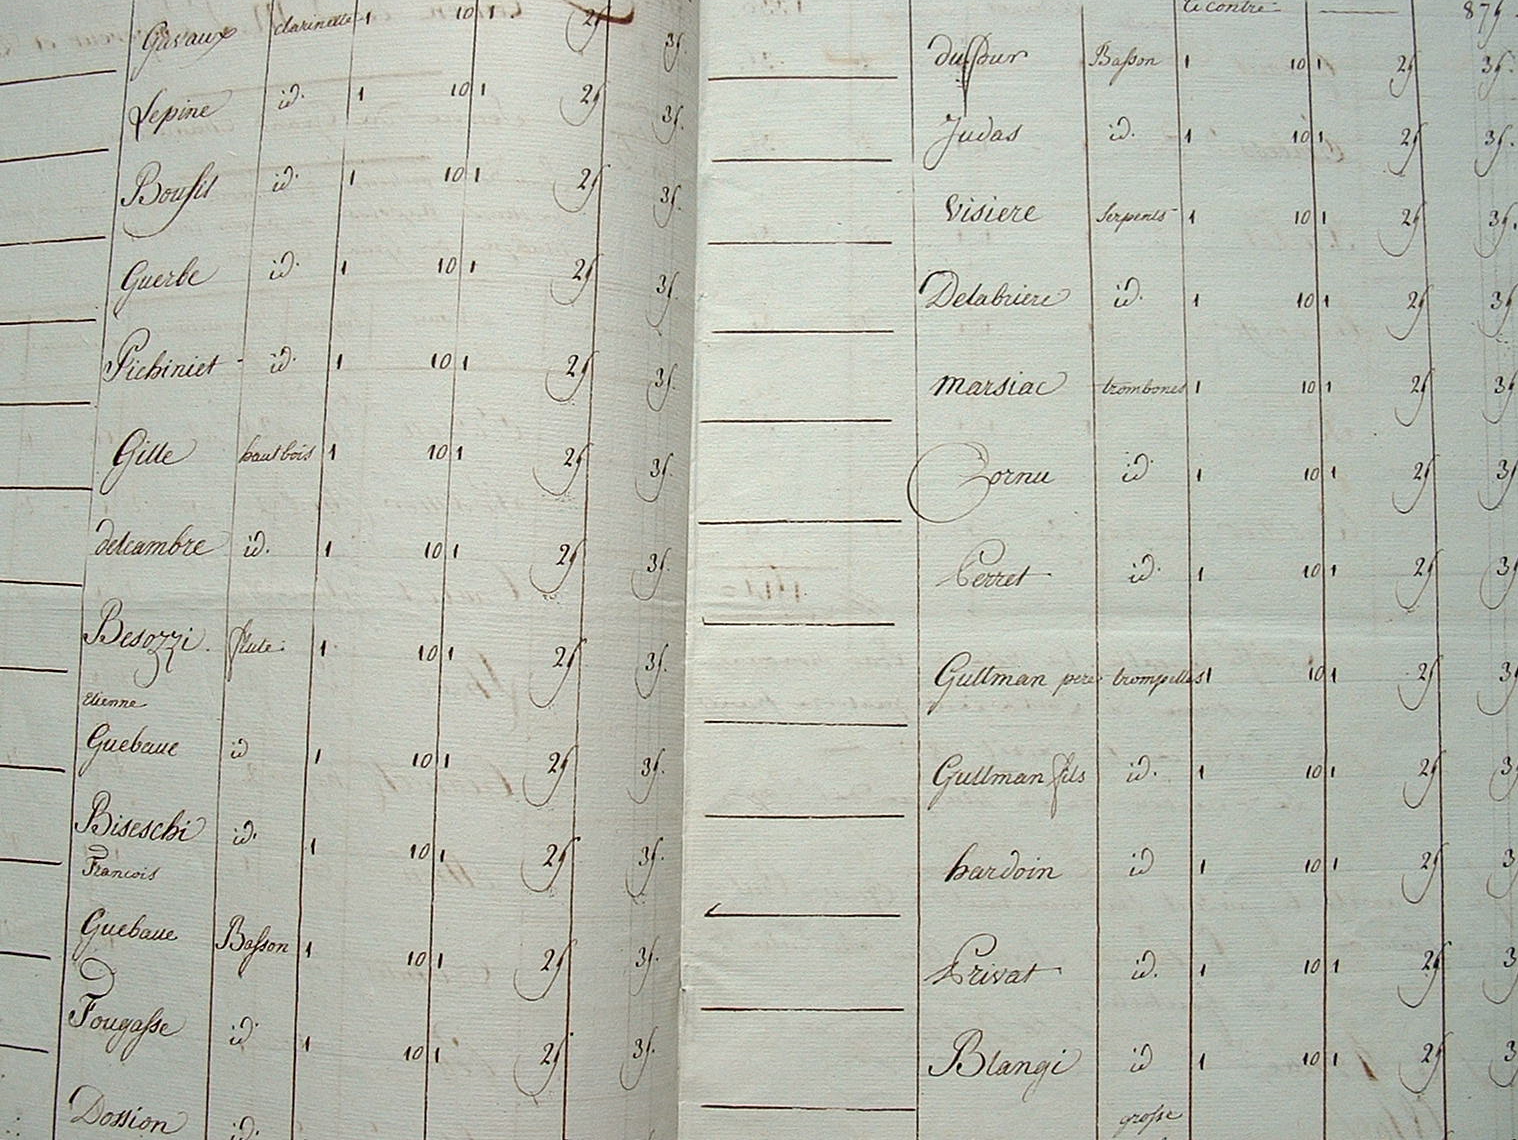 Gavaux clarinette 1 10 1 25 35.
Lepine id. 1 10 1 25 35.
Boufil id. 1 10 1 25 35.
Guerbe id. 1 10 1 25 35.
Pichiniet id. 1 10 1 25 35.
Gille hautbois 1 10 1 25 35.
delcambre id. 1 10 1 25 35.
Besozzi. flute. 1 10 1 25 35.
Etienne
Guebaue id 1 10 1 25 35.
Biseschi id. 1 10 1 25 35.
Francois
Guebaue Basson 1 10 1 25 35.
Fougasse id. 1 10 1 25 35.
Dossion id.
Ci contre 875
Basson 1 10 1 25 35.
Judas id. 1 10 1 25 35.
Visiere Serpents 1 10 1 25 35.
Delabriere id. 1 10 1 25 35
marsiac trombones 1 10 1 25 35
Cornu id. 1 10 1 25 35
Perret id. 1 10 1 25 35
Guttman pere trompettes 1 10 1 25 35
Guttman fils id. 1 10 1 25 3
hardoin id 1 10 1 25 3
Privat id. 1 10 1 25 3
Blangi id 1 10 1 25 3
grosse